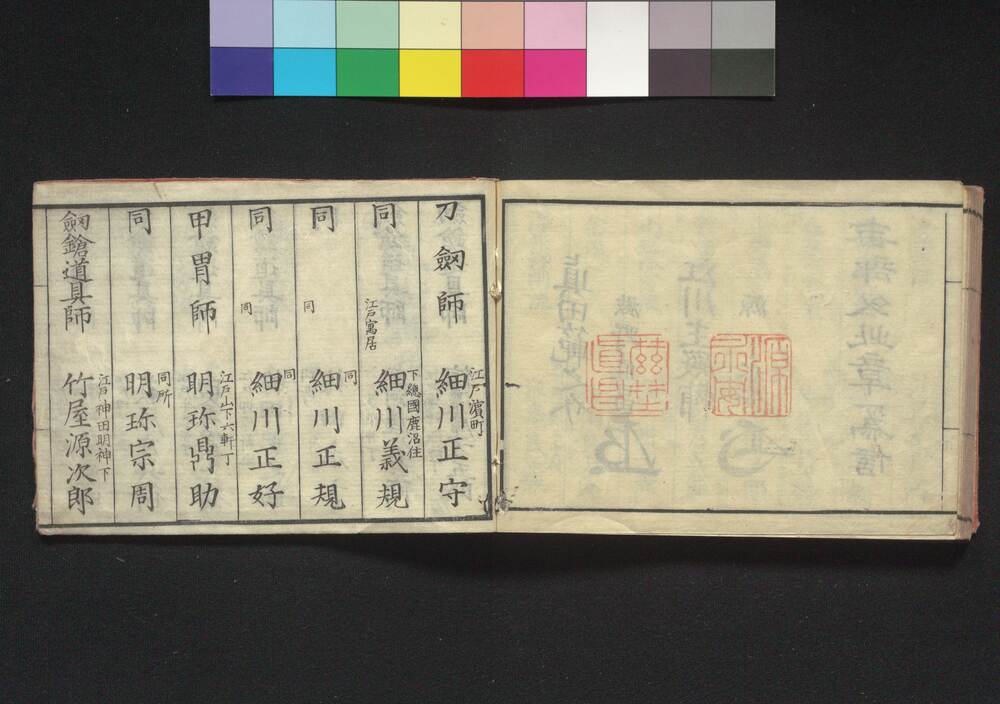 刀劔師
江戸濱町
細川正守
同
江戸寓居
下総國鹿沼住
細川義規
同
同
同
細川正規
同
同
同
細川正好
甲冑師
江戸山下六軒丁
明珎鼎助
同
同所
明珎宗周
劔鎗道具師
江戸神田明神下
竹屋源次郎